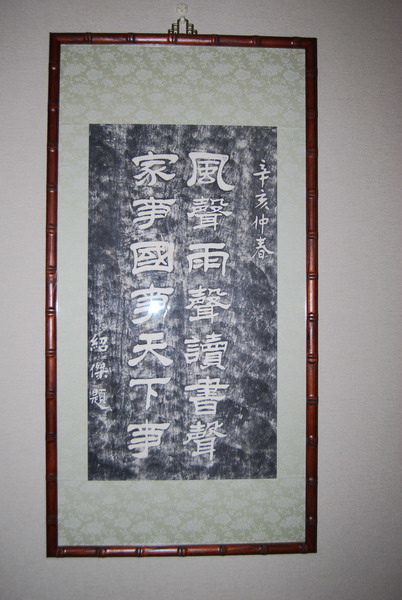 辛亥仲春
風聲雨聲讀書聲
家事國事天下事
紹傑題